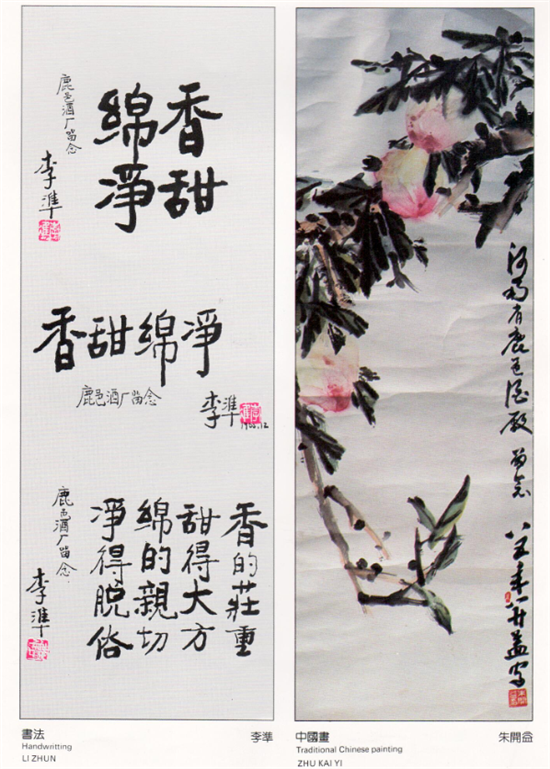 香甜
綿淨
鹿邑酒厂留念
李準
香甜綿淨
鹿邑酒厂留念
李準
香的莊重
甜得大方
綿的親切
淨得脫俗
鹿邑酒厂留念
李準
河南省鹿邑酒厰 留念
八五春开益写
書法
Handwritting
LI ZHUN
李準
中國畫
Traditional Chinese painting
ZHU KAI YI
朱開益